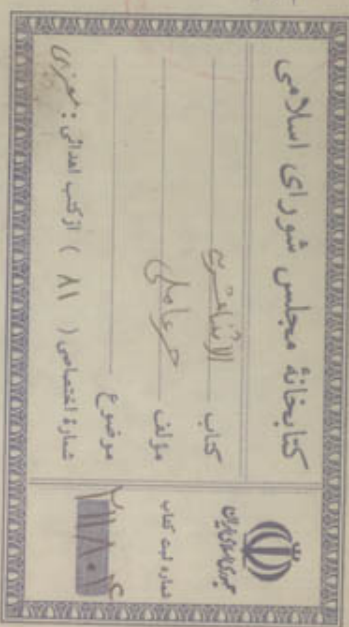 کتابخانهٔ مجلس شورای اسلامی
کتاب الاثنا عشریه
مؤلف حر عاملی
موضوع
شمارهٔ اختصاصی ( ۸۱ ) از کتب اهدائی :
جمهوری اسلامی ایران
شماره ثبت کتاب